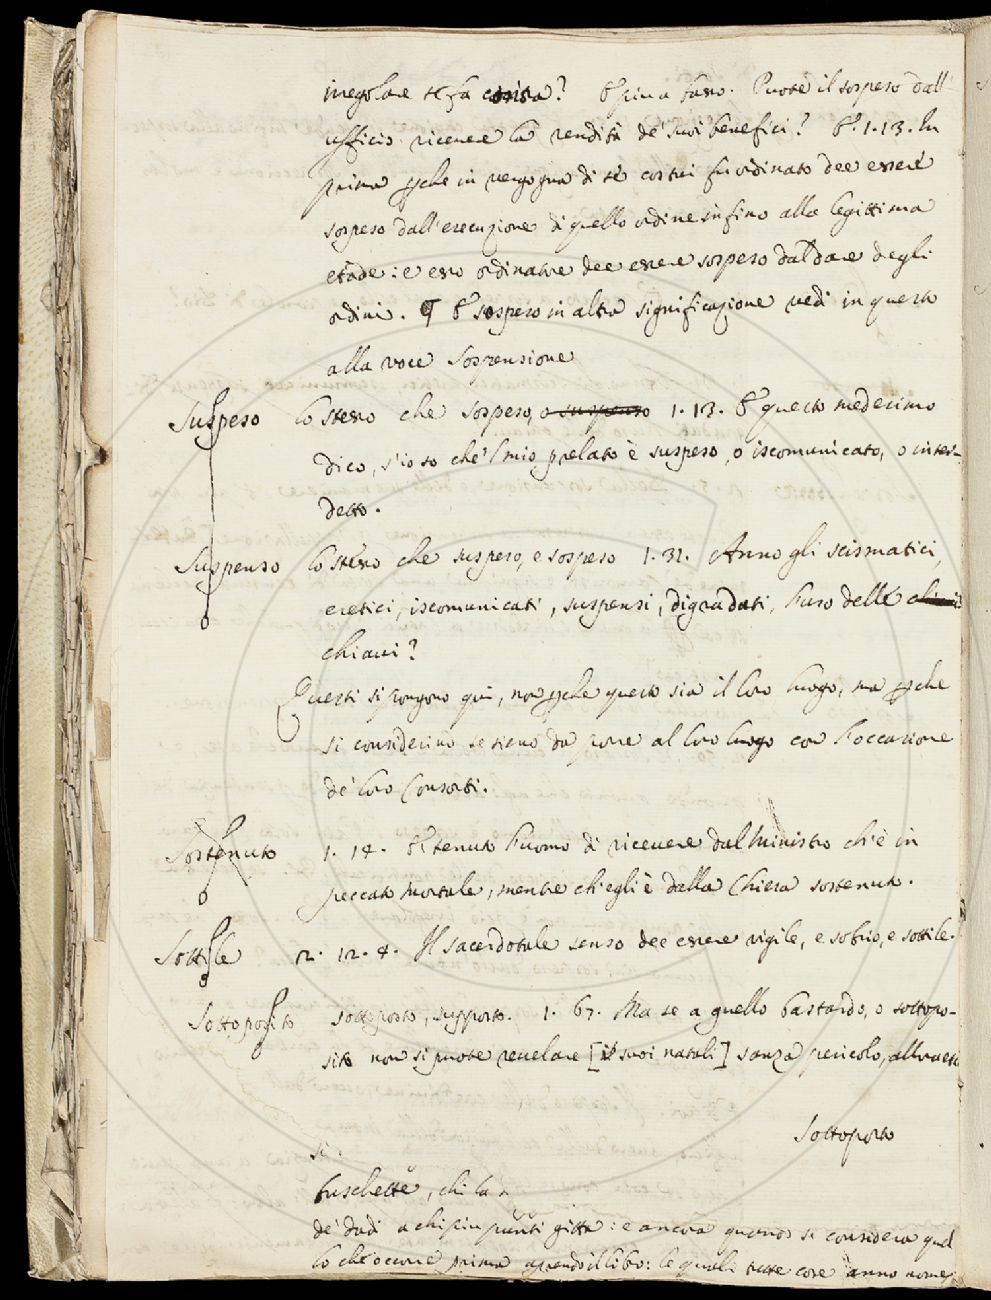 irregolare se fa contra? E piu a farvo. Puote il sospeso dall'
ufficio ricevere la rendita de' suoi benefici? E 1. 13. In
prima pche in vergogna di tè costui fu ordinato dee essere
sospeso dall'esecuzione di quello ordine infino alla legittima
etade: e esso ordinatore dee essere sospeso dal dare degli
ordini. ¶ E sospeso in altra significazione vedi in questo
alla voce Sospensione
Suspeso lo stesso che sospeso, o suspenso 1. 13. E questo medesimo
dico, s'io so che'l mio prelato è suspeso, o iscomunicato, o inter-
detto.
Suspenso lo stesso che suspeso, e sospeso 1. 31. Anno gli scismatici,
eretici, iscomunicati, suspensi, digradati, l'uso delle
chiavi?
Questi si pongono qui, non pche questo sia il loro luogo, ma pche
si considerino se sieno da porre al loro luogo con l'occasione
de' loro Consorti.
Sostenuto 1. 14. E tenuto l'uomo di ricevere dal Ministro ch'è in
peccato mortale, mentre ch'egli è dalla Chiesa sostenuto.
Sottile 2. 12. 4. Il sacerdotale senso dee essere vigile, e sobrio, e sottile.
Sottoposito sottoposto, supposto. 1. 67. Ma se a quello bastardo, o sottopo-
sito non si puote revelare [i suoi natali] sanza pericolo, allora
Sottoposto
si
buschette, chi la
de' dadi a chi piu punti gitta: e ancora quando si considera quel
lo che occorre prima aprendo il libro: le quali tutte cose anno nome